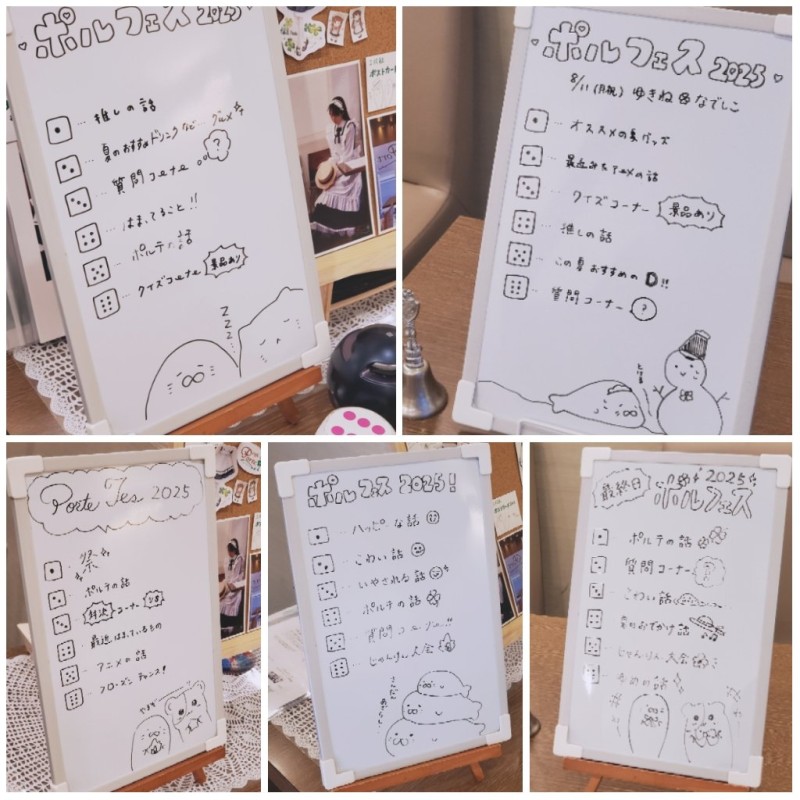 ポルフェス2025
推しの話
夏のおすすめドリンクなど…グルメ
質問コーナー ?
はまってること!!
ポルテの話
クイズコーナー 景品あり
zzz
ポルフェス2025
8/11(月祝) ゆきね なでしこ
オススメの夏グッズ
最近みたアニメの話
クイズコーナー 景品あり
推しの話
この夏おすすめの D!!
質問コーナー ?
Porte Fes 2025
祭
ポルテの話
対決コーナー
最近はまっているもの
アニメの話
フローズンチャンス!
ポルフェス2025!
ハッピーな話
こわい話
いやされる話
ポルテの話
質問コーナー!!
じゃんけん大会
最終日 2025 ポルフェス
ポルテの話
質問コーナー
こわい話
夏のおでかけ話
じゃんけん大会